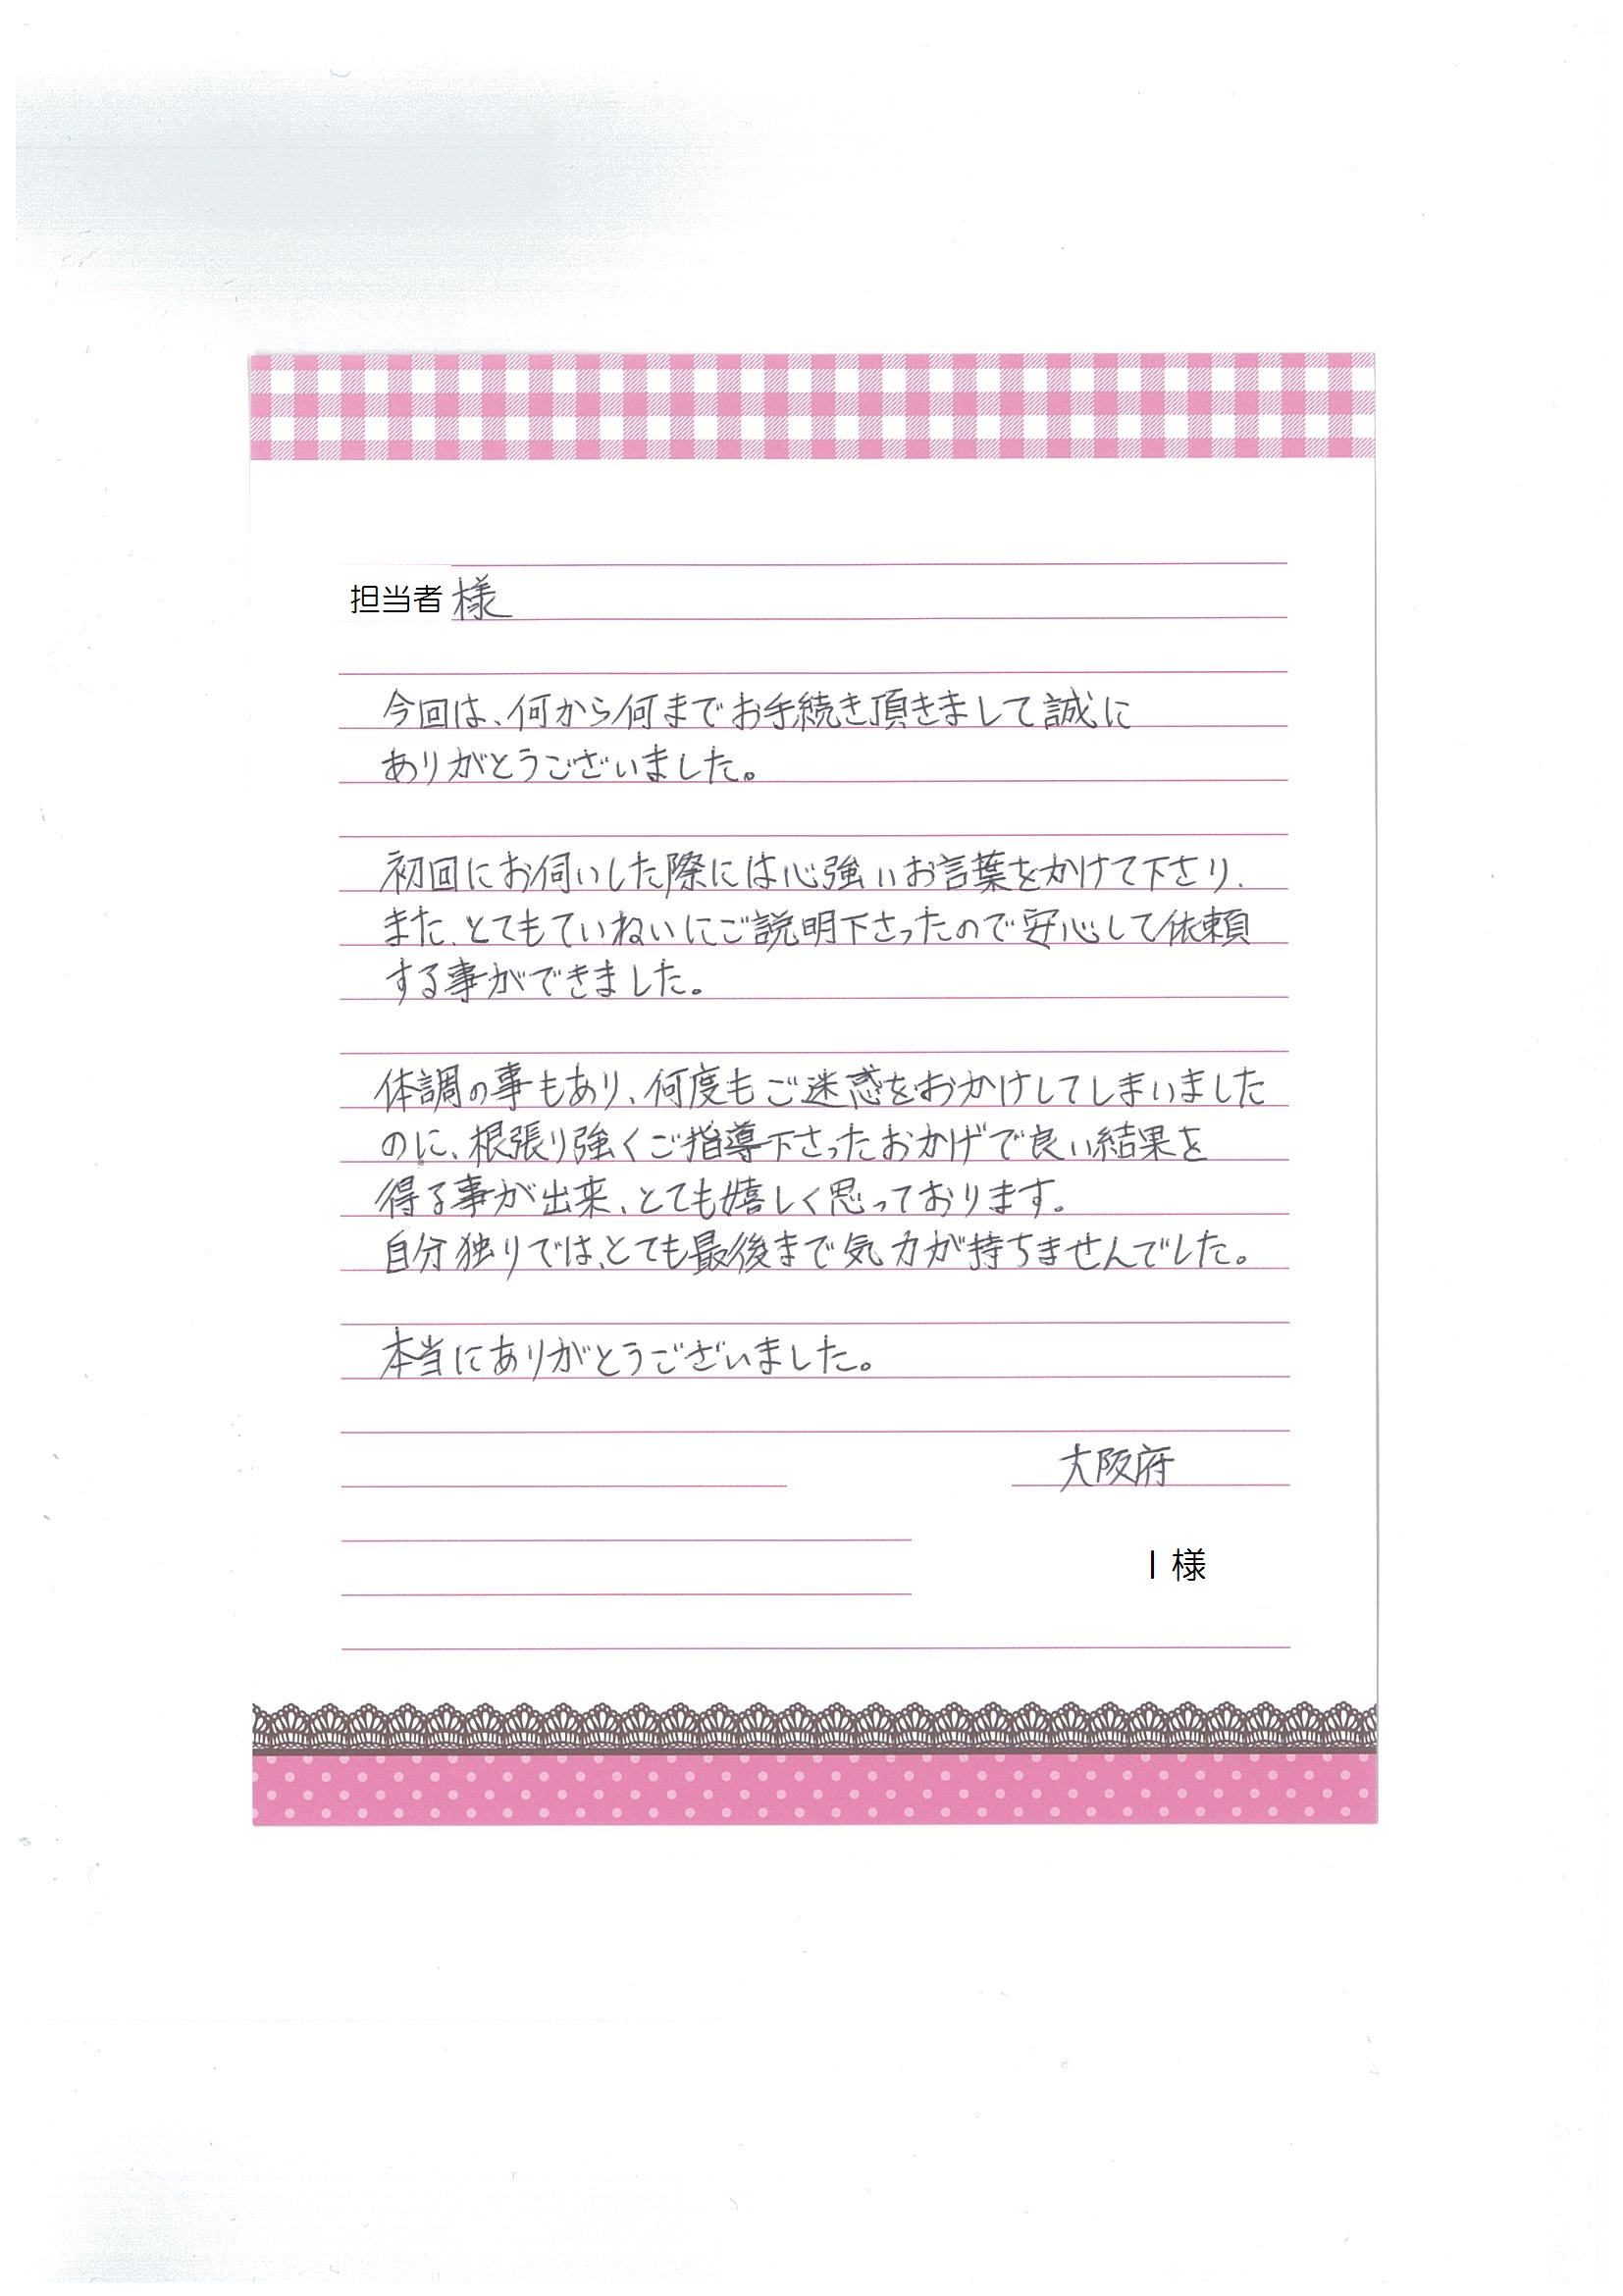 担当者様
今回は、何から何までお手続き頂きまして誠に
ありがとうございました。
初回にお伺いした際には心強いお言葉をかけて下さり、
また、とてもていねいにご説明下さったので安心して依頼
する事ができました。
体調の事もあり、何度もご迷惑をおかけしてしまいました
のに、根張り強くご指導下さったおかげで良い結果を
得る事が出来、とても嬉しく思っております。
自分独りでは、とても最後まで気力が持ちませんでした。
本当にありがとうございました。
大阪府
I 様